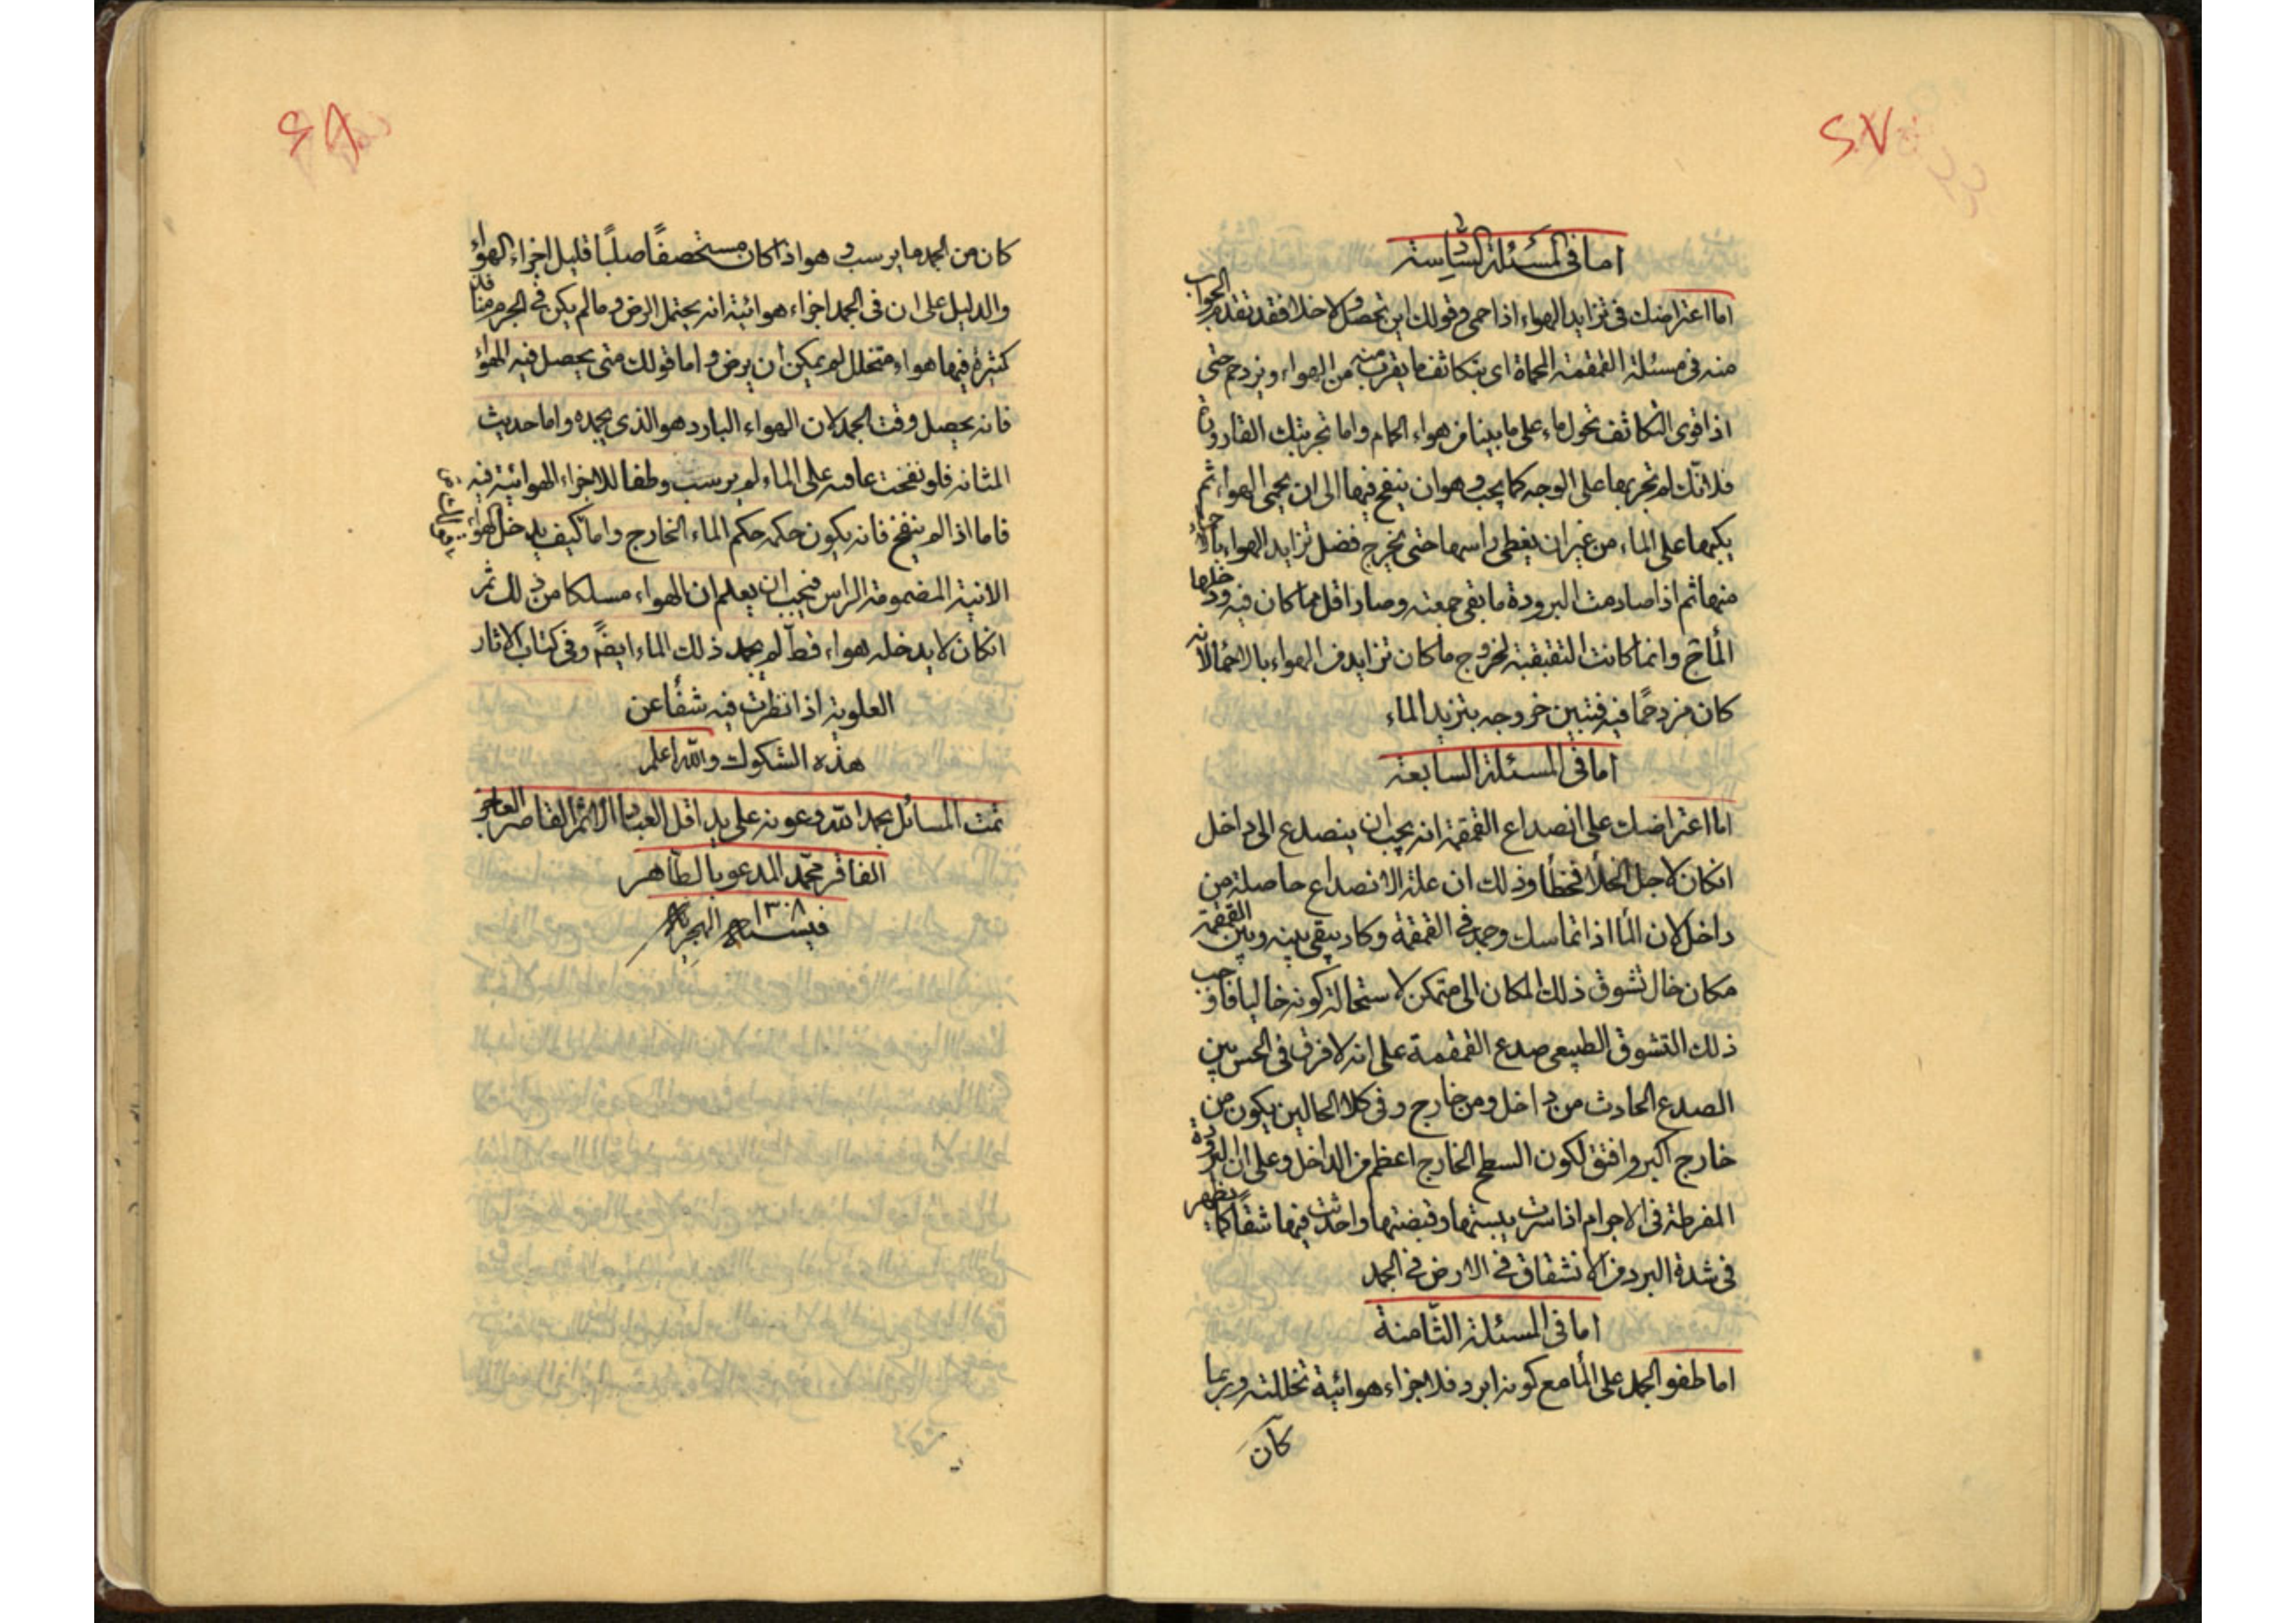 ٤٧
اما فی المسئلة السادسة
اما اعتراضك فی تزايد الهواء اذا حمی وقولك اين تحصل ولا خلا فقد تقدم الجواب
منه فی مسئلة القمقمة المحماة ای يتكاثف ما يقرب منه من الهواء ويزدحم حتی
اذا قوی التكاثف تحول ماء علی ما بينا من هواء الحمام واما تجربتك القارورة
فلانك لم تجربها علی الوجه كما يجب وهو ان ينفخ فيها الی ان يحمی الهواء ثم
يكبها علی الماء من غير ان يغطی راسها حتی يخرج فضل تزايد الهواء
منها ثم اذا صادمت البرودة ما بقی جمعته وصار اقل مما كان فيه ودخلها
الماء وانما كانت البقبقة لخروج ما كان تزايد من الهواء بالاحماء لانه
كان مزدحما فيه فتبين خروجه بتزيد الماء
اما فی المسئلة السابعة
اما اعتراضك علی انصداع القمقمة انه يجب ان ينصدع الی داخل
انكان لاجل الخلأ فخطأ وذلك ان علة الانصداع حاصلة من
داخل لان الما اذا تماسك وجمد فی القمقمة وكاد يبقی بينه وبين القمقمة
مكان خال تشوق ذلك المكان الی متمكن لاستحالة كونه خاليا فاوجب
ذلك التشوق الطبيعی صدع القمقمة علی انه لا فرق فی الحس بين
الصدع الحادث من داخل ومن خارج وفی كلا الحالين يكون من
خارج اكبر وافتق لكون السطح الخارج اعظم من الداخل وعلی ان البرودة
المفرطة فی الاجرام اذا سرت يبستها وقبضتها واحدثت فيها شقا كما يظهر
فی شدة البرد من الانشقاق فی الارض فی الجمد
اما فی المسئلة الثامنة
اما طفو الجمد علی الما مع كونه ابرد فلاجزاء هوائية تخللته وربما
كان
٤٨
كان من الجمد ما يرسب وهو اذا كان مستحصفا صلبا قليل اجزاء الهواء
والدليل علی ان فی الجمد اجزاء هوائية انه يحتمل الرض وما لم يكن فی الجرم منافذ
كثيرة فيها هواء متخلل لم يمكن ان يرض واما قولك متی يحصل فيه الهواء
فانه يحصل وقت الجمد لان الهواء البارد هو الذی يجمده واما حديث
المثانه فلو نفخت علی الماء لم يرسب وطفا للاجزاء الهوائية فيه
فاما اذا لم ينفخ فانه يكون حكمه حكم الماء الخارج واما كيف يدخل الهواء
الآنية المضمومة الراس فيجب ان يعلم ان للهواء مسلكا من ذلك ثم
انكان لا يدخله هواء قط لم يجمد ذلك الماء ايضا وفی كتاب الاثار
العلوية اذا نظرت فيه شفأ عن
هذه الشكوك والله اعلم
تمت المسائل بحمد الله وعونه علی يد اقل العباد الآثم القاصر العاجز
الفاقر محمد المدعو بالطاهر
فی سنة ١٣٠٨ الهجرية